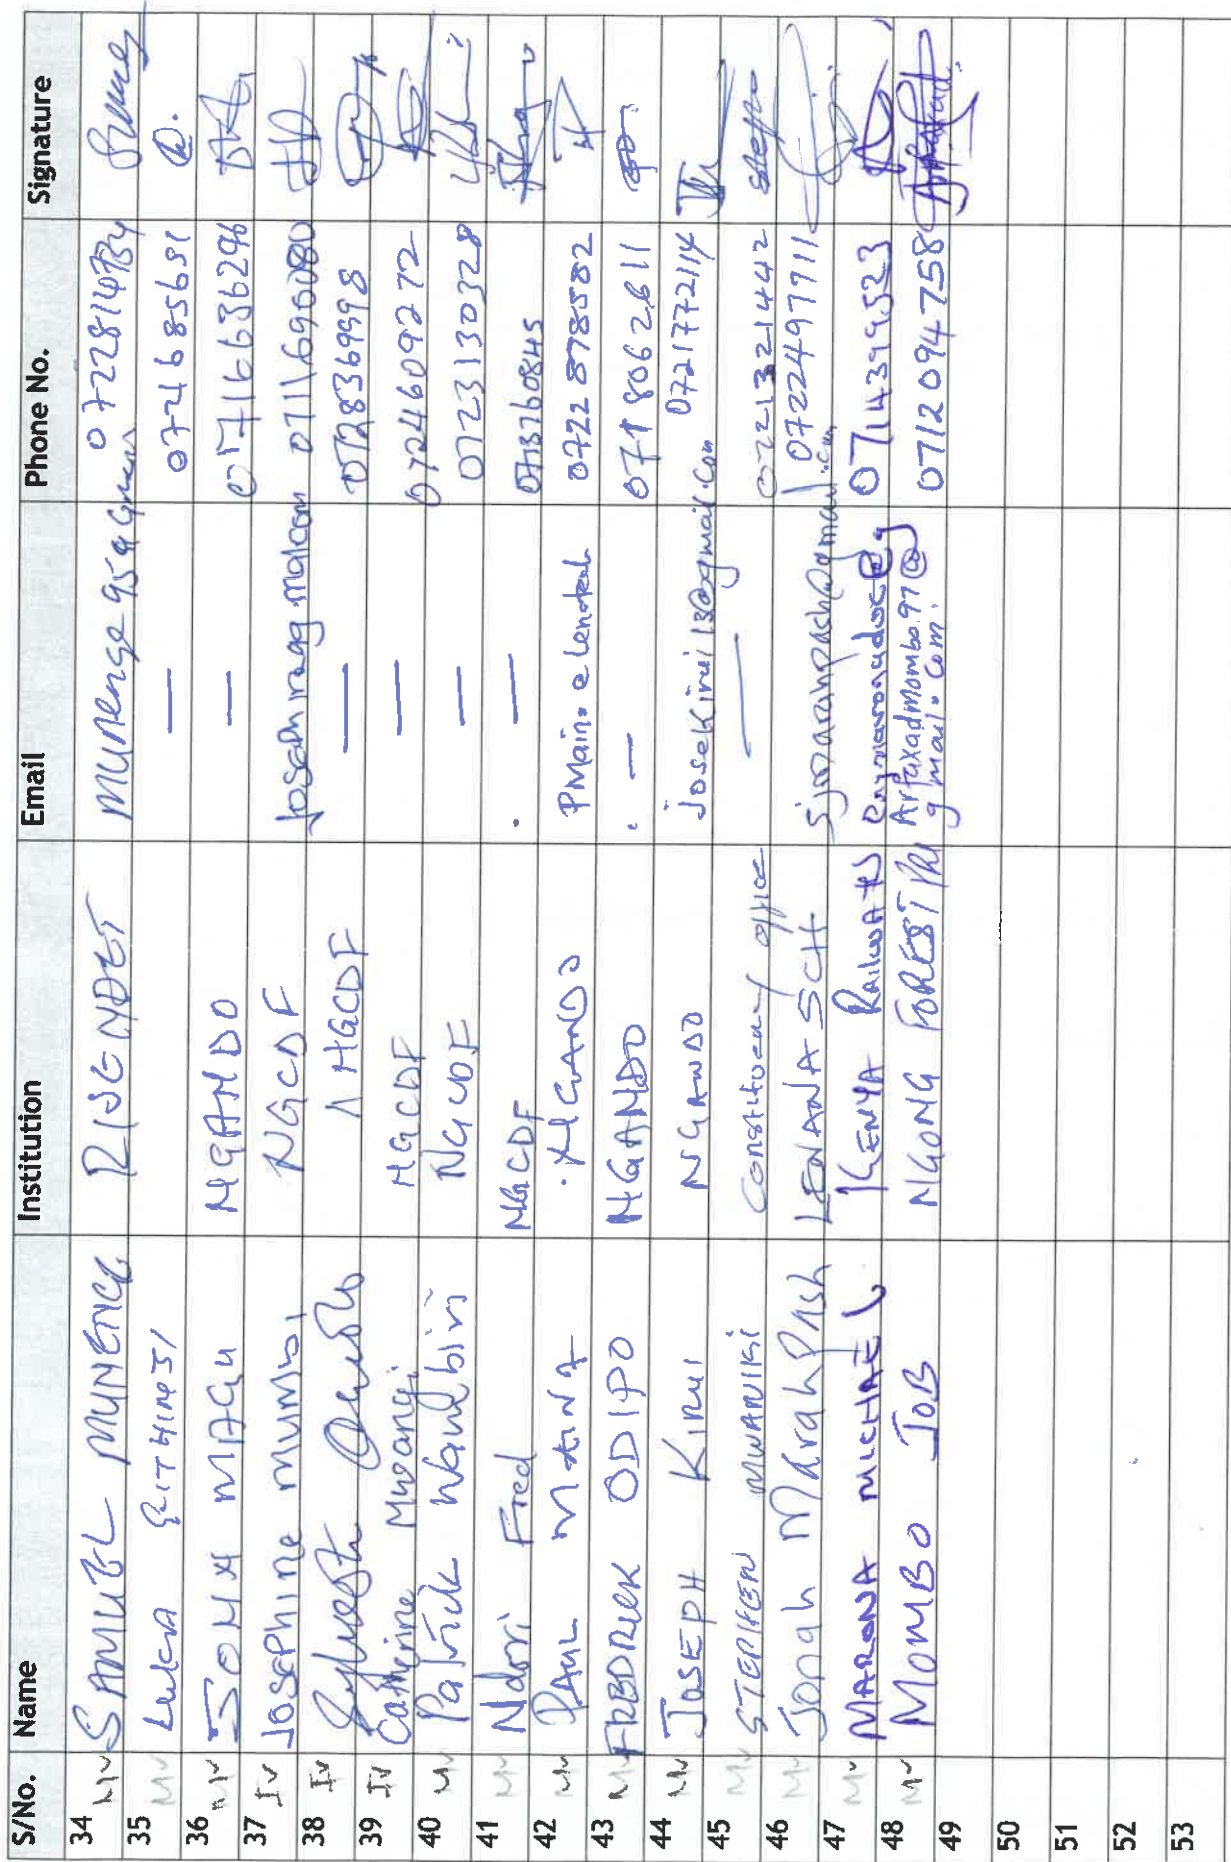 S/No. Name Institution Email Phone No. Signature
34 Mv SAMUEL MUNENGE munenge95@gmail 0722814734
35 Mv Luka GITHINJI — 0721685681
36 Mv JOHN MAGU NGANDO — 0716636296
37 Iv JosePhine Mumbi NGCDF 0711690080
38 Iv NGCDF — 0728369998
39 Iv Catherine Mwangi NGCDF — 0724609272
40 Mv Patrick Wambiri NGCDF — 0723130328
41 Mv Ndori Fred NGCDF . — 0713760845
42 Mv PAUL MAINA NGANDO PMaina 0722878582
43 Mv FREDRICK ODIPO NGANDO . — 0718062611
44 Mv JOSEPH KIRUI NGANDO josekirui13@gmail.com 0721772114
45 Mv STEPHEN MWANIKI Constituency office — 0721321442
46 Mv Jonah MarahPash LENANA SCH Sjmarahpash@gmail.com 0722497711
47 Mv MARONA MICHAEL KENYA RailwAYS 0714399523
48 Mv MOMBO JOB NGONG FOREST PRI Arfaxadmombo97@
gmail.com. 0712094758
49
50
51
52
53